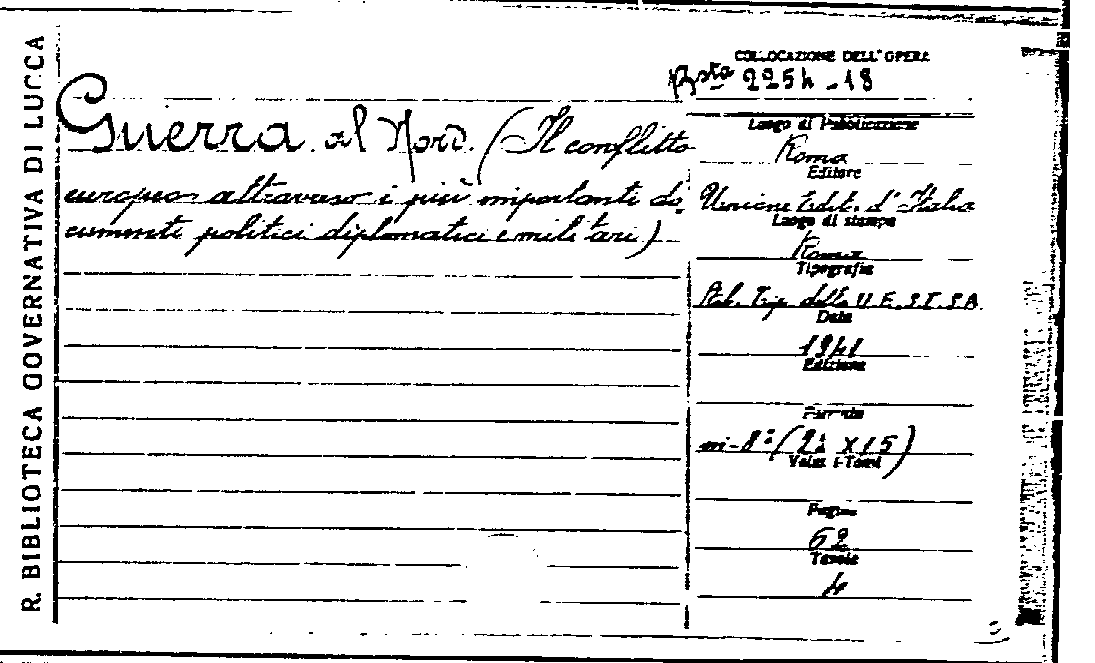 R. BIBLIOTECA GOVERNATIVA DI LUCCA
COLLOCAZIONE DELL'OPERA
Bsta 2254 - 18
Guerra al Nord. (Il conflitto
europeo attraverso i più importanti do,
cumenti politici diplomatici e militari)
Luogo di Pubblicazione
Roma
Editore
Unione Edit. d'Italia
Luogo di stampa
Roma
Tipografia
Stab. Tip. della U.E.S.I.S.A.
Data
1941
Edizione
Formato
in-8° (21 X 15)
Volumi e Tomi
Pagine
62
Tavole
4